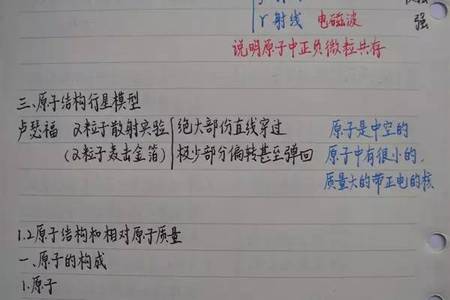 γ射线 电磁波 强
说明原子中正负微粒共存
三、原子结构行星模型
卢瑟福 α粒子散射实验 绝大部份直线穿过 原子是中空的
(α粒子轰击金箔) 极少部分偏转甚至弹回 原子中有很小的,
质量大的带正电的核
1.2原子结构和相对原子质量
一、原子的构成
1.原子